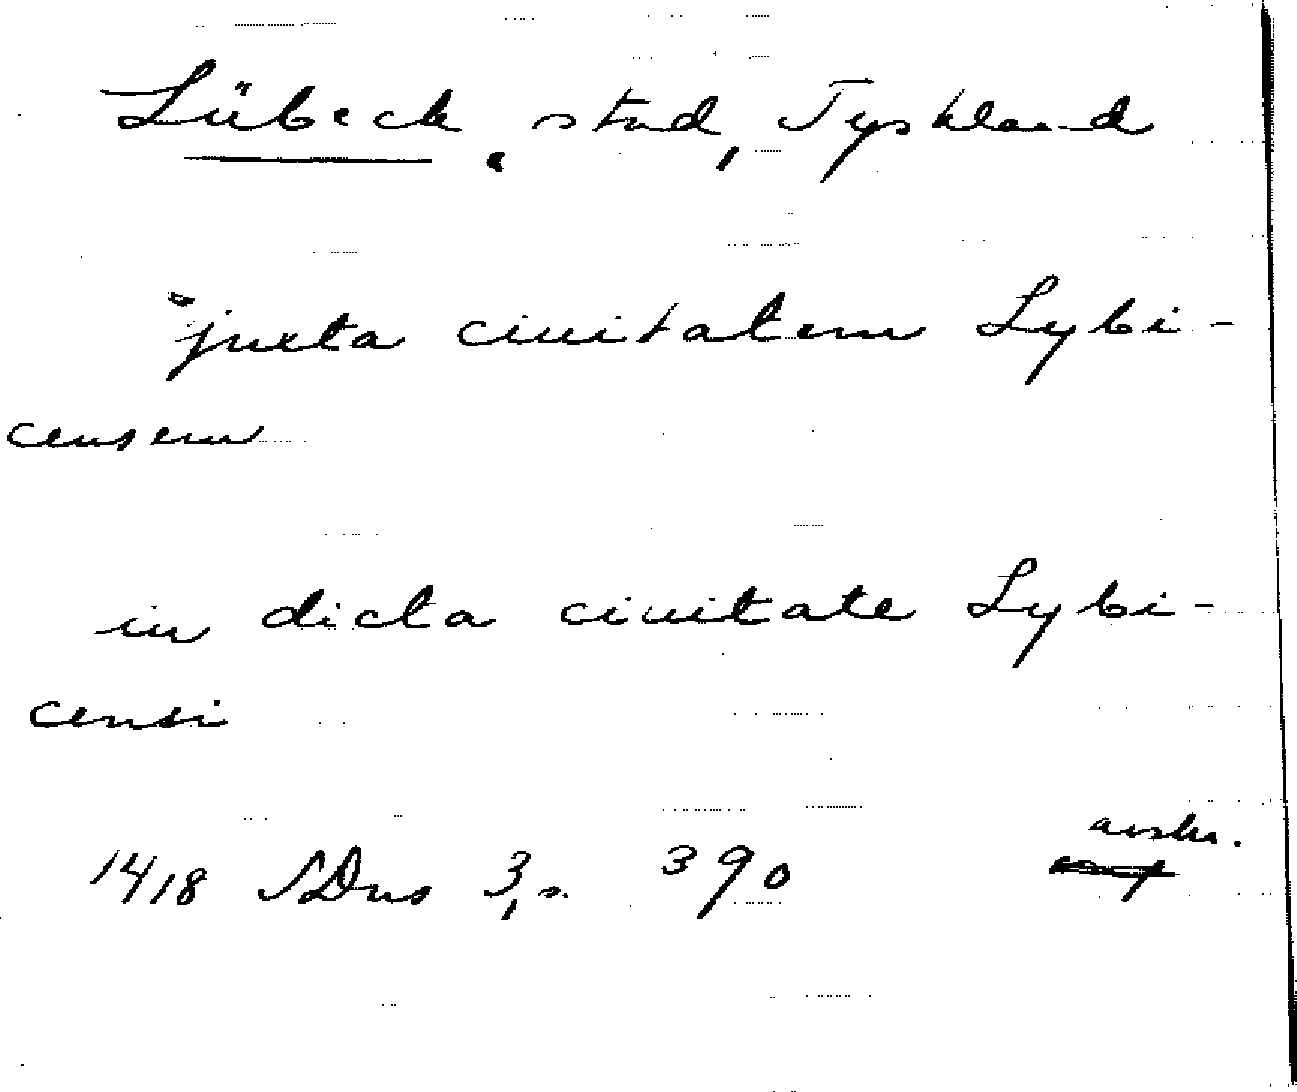 Lübeck, stad, Tyskland
juxta ciuitatem Lybi-
censem
in dicta ciuitate Lybi-
censi
avskr.
1418 SDns 3, s. 390